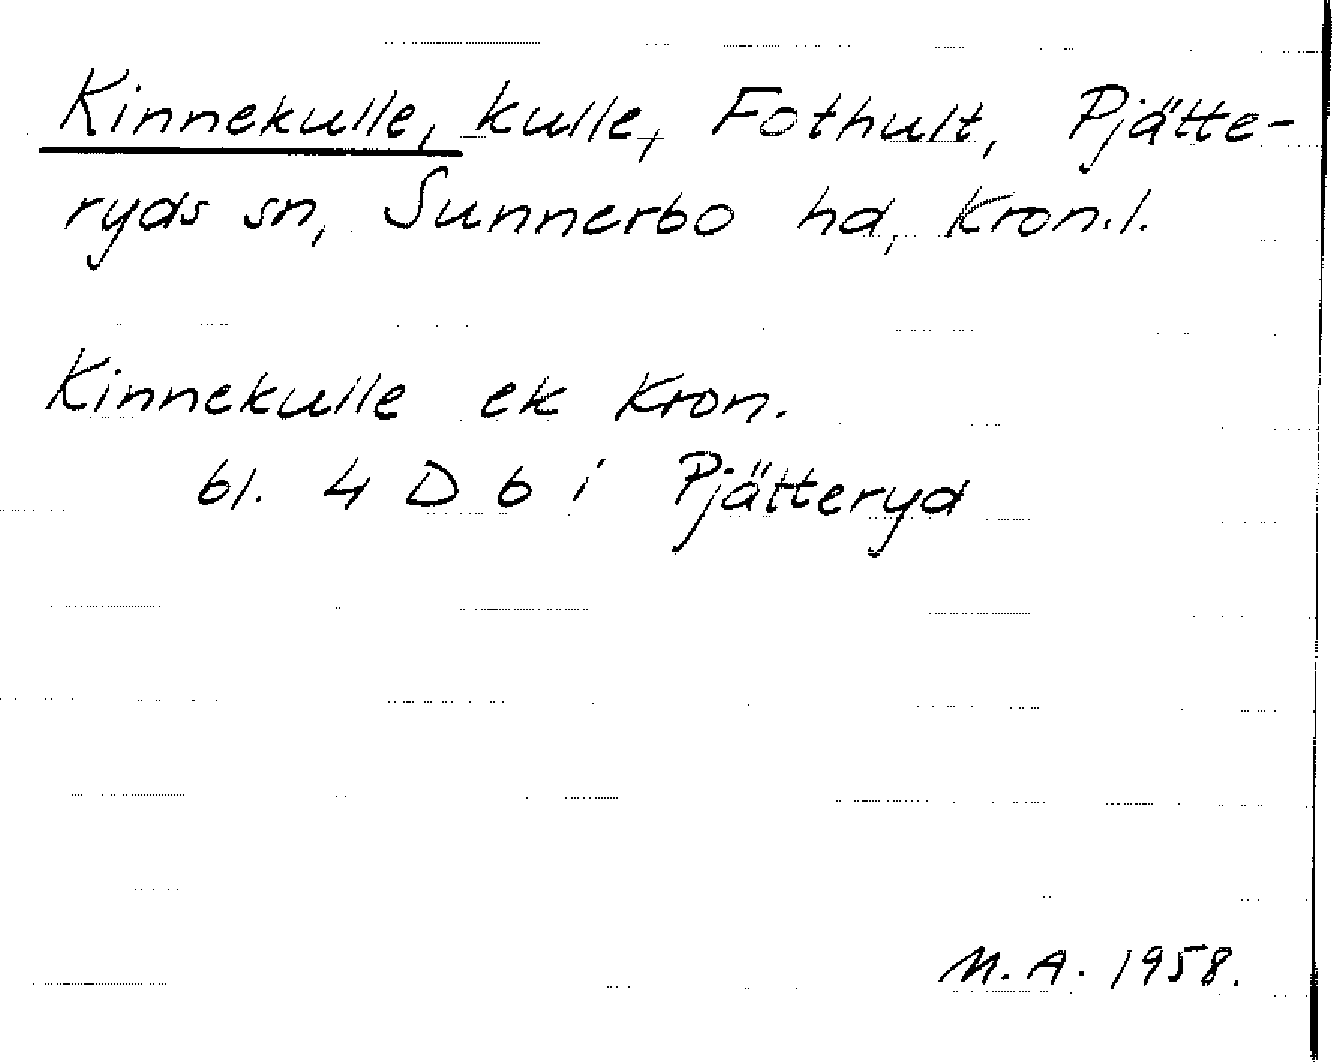 Kinnekulle, kulle, Fothult, Pjätte-
ryds sn, Sunnerbo hd, Kron.l.
Kinnekulle ek Kron.
bl. 4 D 6 i Pjätteryd
M.A. 1958.